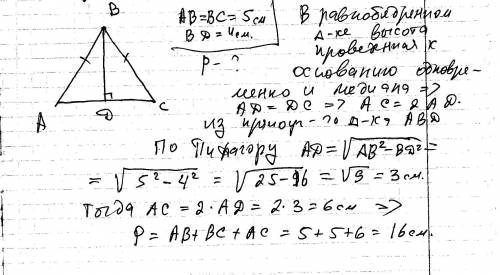 B
A
D
C
AB=BC=5см
BD=4см.
P-?
В равнобедренном
д-ке высота
проведенная к
основанию одновре-
менно и медиана =>
AD=DC => AC=2AD.
из прямоуг-го д-ка ABD
По Пифагору AD=√AB²-BD² =
= √5²-4² = √25-16 = √9 = 3см.
Тогда AC = 2·AD = 2·3 = 6см =>
P = AB+BC+AC = 5+5+6 = 16см.